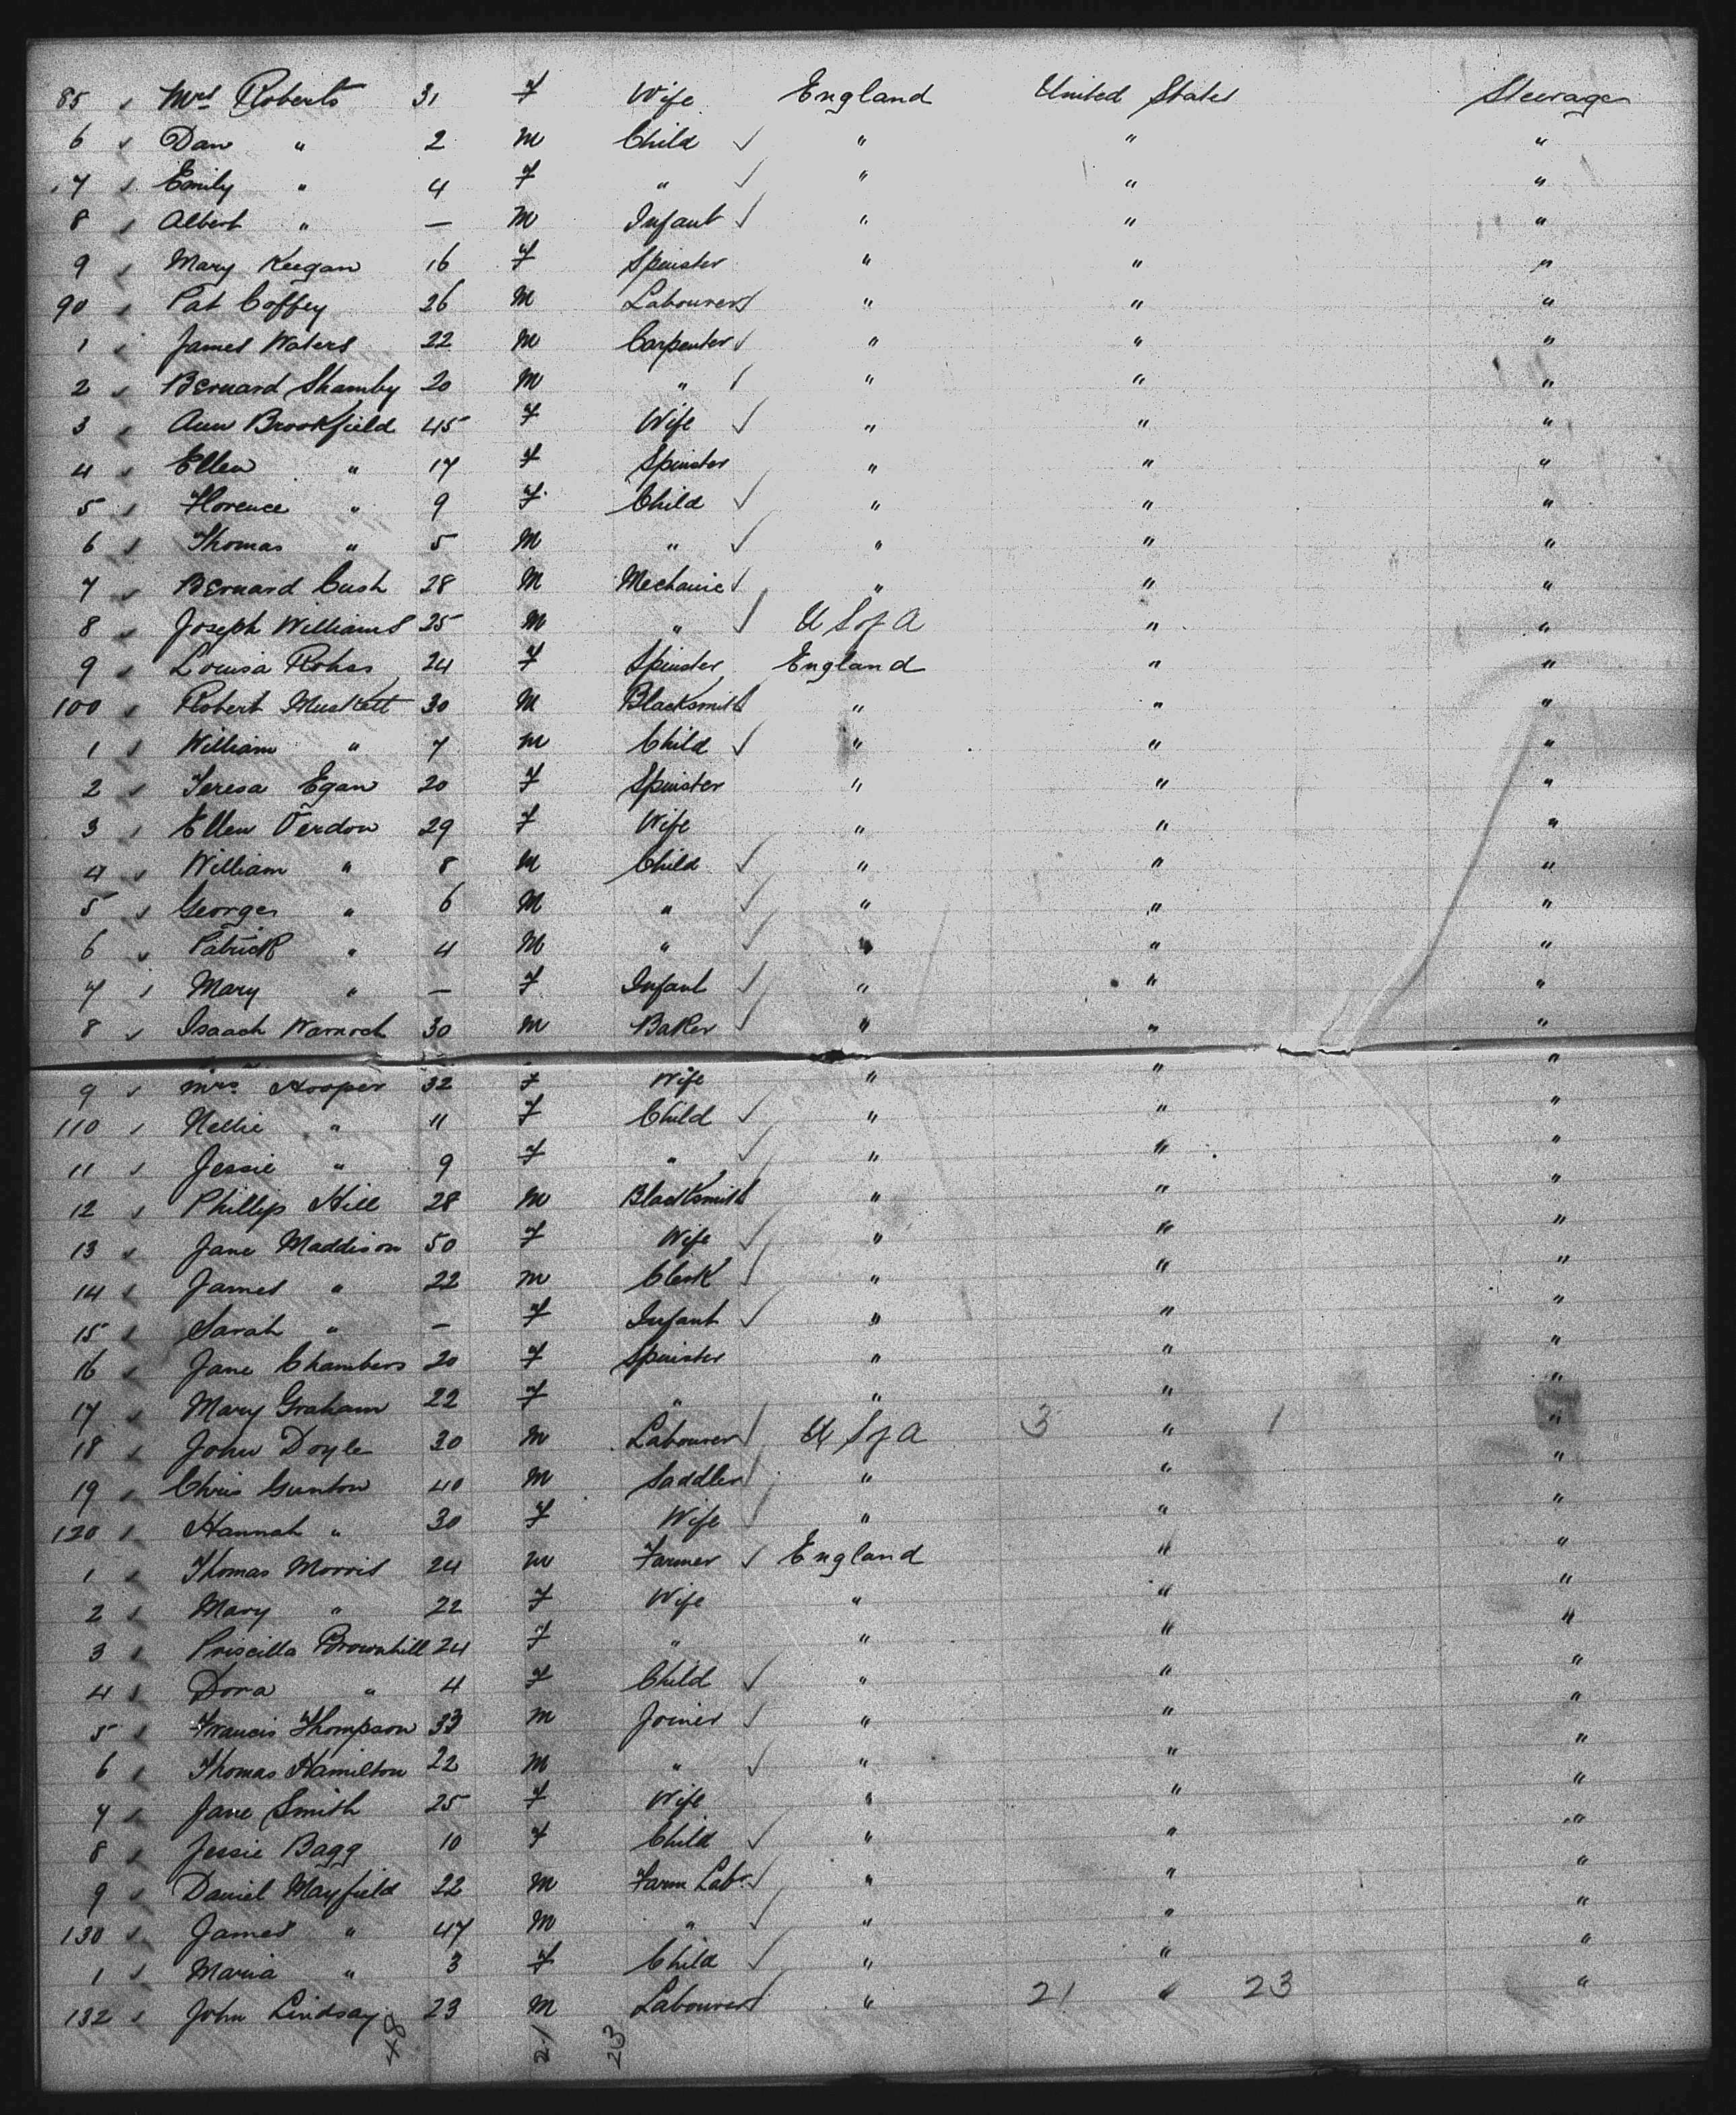 85 Mrs Roberts 31 F Wife England United States Steerage
6 Dan " 2 M Child " " "
7 Emily " 4 F " " " "
8 Albert " — M Infant " " "
9 Mary Keegan 16 F Spinster " " "
90 Pat Coffey 26 M Labourer " " "
1 James Waters 22 M Carpenter " " "
2 Bernard Shamby 20 M " " " "
3 Ann Brookfield 45 F Wife " " "
4 Ellen " 17 F Spinster " " "
5 Florence " 9 F Child " " "
6 Thomas " 5 M " " " "
7 Bernard Cush 28 M Mechanic " " "
8 Joseph Williams 25 M " U S of A " "
9 Louisa 24 F Spinster England " "
100 Robert Muskett 30 M Blacksmith " " "
1 William " 7 M Child " " "
2 Teresa Egan 20 F Spinster " " "
3 Ellen Verdon 29 F Wife " " "
4 William " 8 M Child " " "
5 George " 6 M " " " "
6 Patrick " 4 M " " " "
7 Mary " — F Infant " " "
8 Isaach Warnoch 30 M Baker " " "
9 Mrs Hooper 32 F Wife " " "
110 Nellie " 11 F Child " " "
11 Jessie " 9 F " " " "
12 Phillip Hill 28 M Blacksmith " " "
13 Jane Maddison 50 F Wife " " "
14 James " 22 M Clerk " " "
15 Sarah " — F Infant " " "
16 Jane Chambers 20 F Spinster " " "
17 Mary Graham 22 F " " " "
18 John Doyle 30 M Labourer U S of A 3 " 1 "
19 Chris Gunton 40 M Saddler " " "
120 Hannah " 30 F Wife " " "
1 Thomas Morris 24 M Farmer England " "
2 Mary " 22 F Wife " " "
3 Priscilla Brownhill 24 F " " " "
4 Dora " 4 F Child " " "
5 Francis Thompson 33 M Joiner " " "
6 Thomas Hamilton 22 M " " " "
7 Jane Smith 25 F Wife " " "
8 Jessie Bagg 10 F Child " " "
9 Daniel Mayfield 22 M Farm Labr " " "
130 James " 47 M " " " "
1 Maria " 3 F Child " " "
132 John Lindsay 23 M Labourer " 21 " 23 "
48 21 23